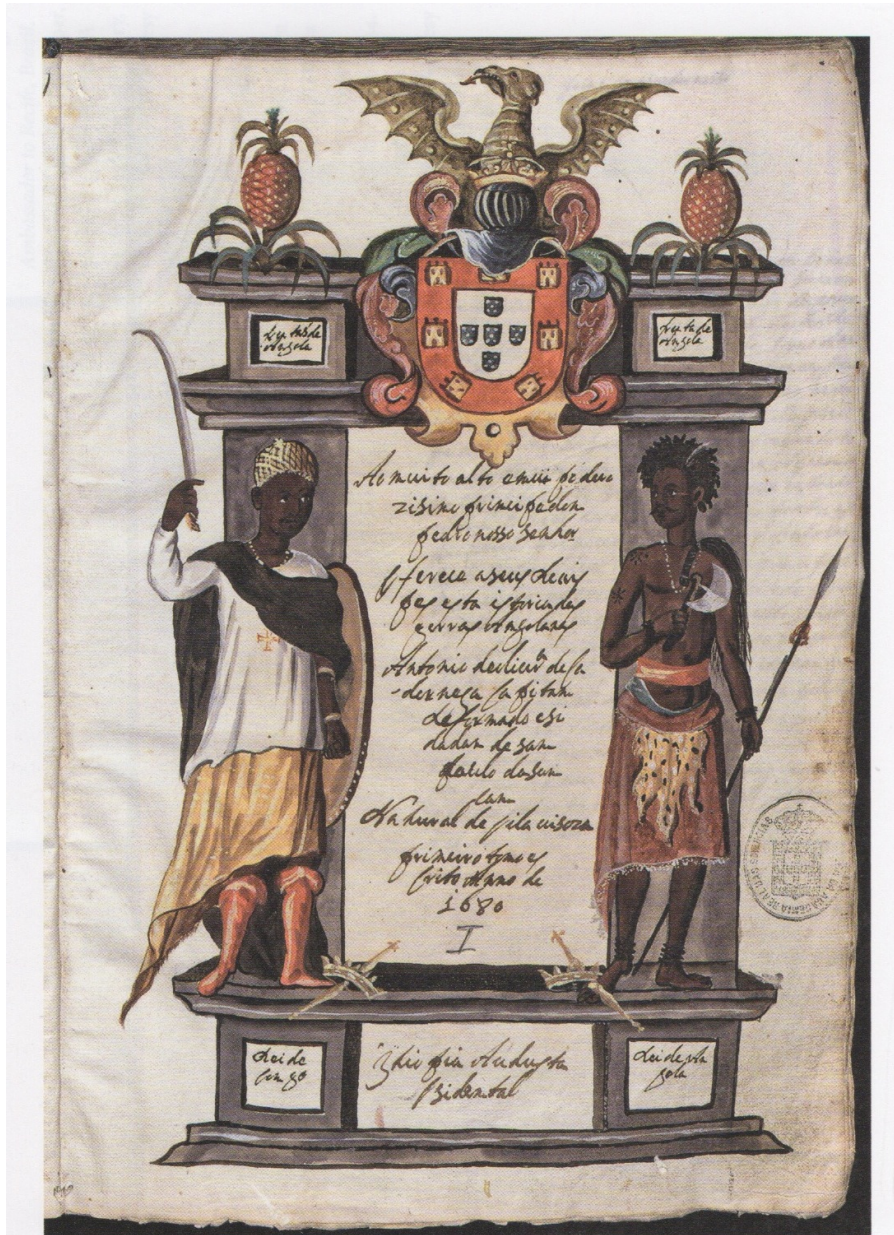 fruta de
Angola
fruta de
Angola
Ao muito alto e mui podero
zisimo principe dom
pedro nosso senhor
oferece a seus Reais
pes esta istoria das
gerras Angolanas
Antonio de oliura de Ca
dornega Capitam
Reformado e si
dadam de sam
paulo dasun
sam
Natural de Vila visoza
primeiro tomo es
crito Anno de
1680
I
Rei de
Congo
Ethiopia
Rei de An
gola